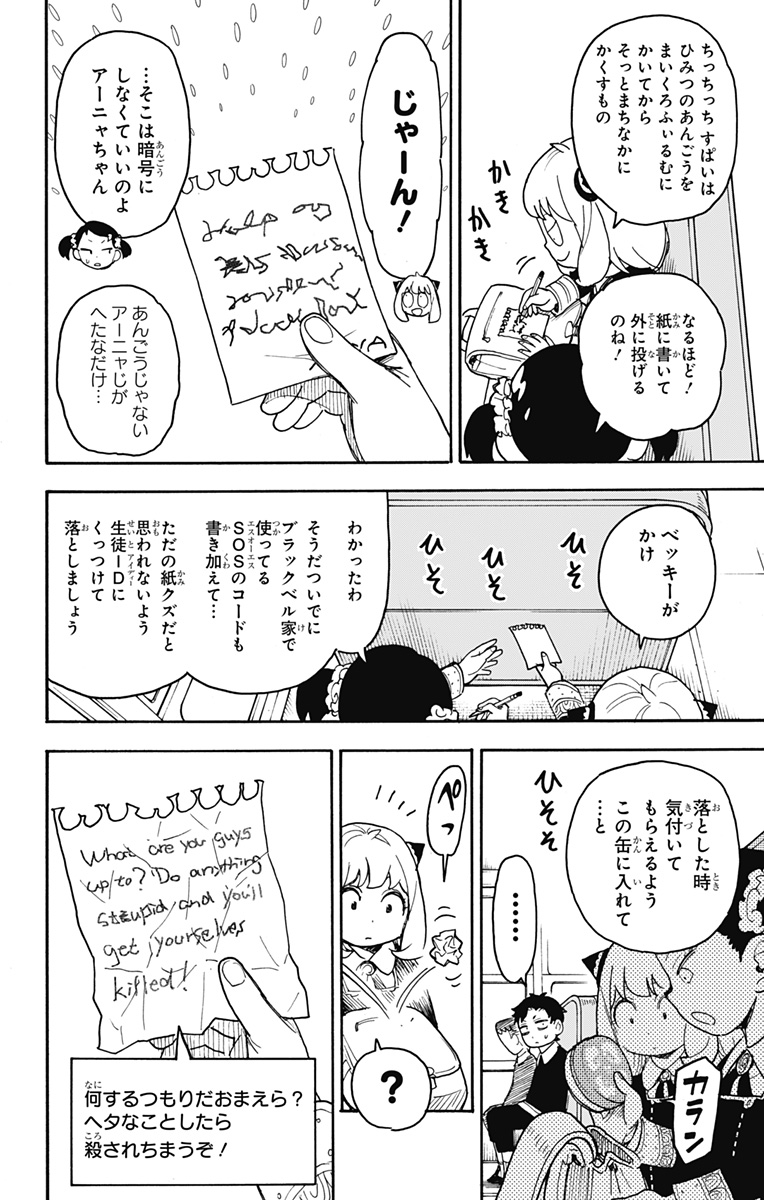 ちっちっち すぱいは
ひみつのあんごうを
まいくろふぃるむに
かいてから
そっとまちなかに
かくすもの
かきかき
なるほど!
紙に書いて
外に投げる
のね!
じゃーん!
Help
…そこは暗号に
しなくていいのよ
アーニャちゃん
あんごうじゃない
アーニャじが
へたなだけ…
ベッキーが
かけ
ひそ
ひそ
ひそ
わかったわ
そうだついでに
ブラックベル家で
使ってる
SOSのコードも
書き加えて…
ただの紙クズだと
思われないよう
生徒IDに
くっつけて
落としましょう
落とした時
気付いて
もらえるよう
この缶に入れて
…と
ひそそ
……
カラン
ぺっ
?
What are you guys
up to? Do anything
stupid and you'll
get yourselves
killed!
何するつもりだおまえら?
ヘタなことしたら
殺されちまうぞ!